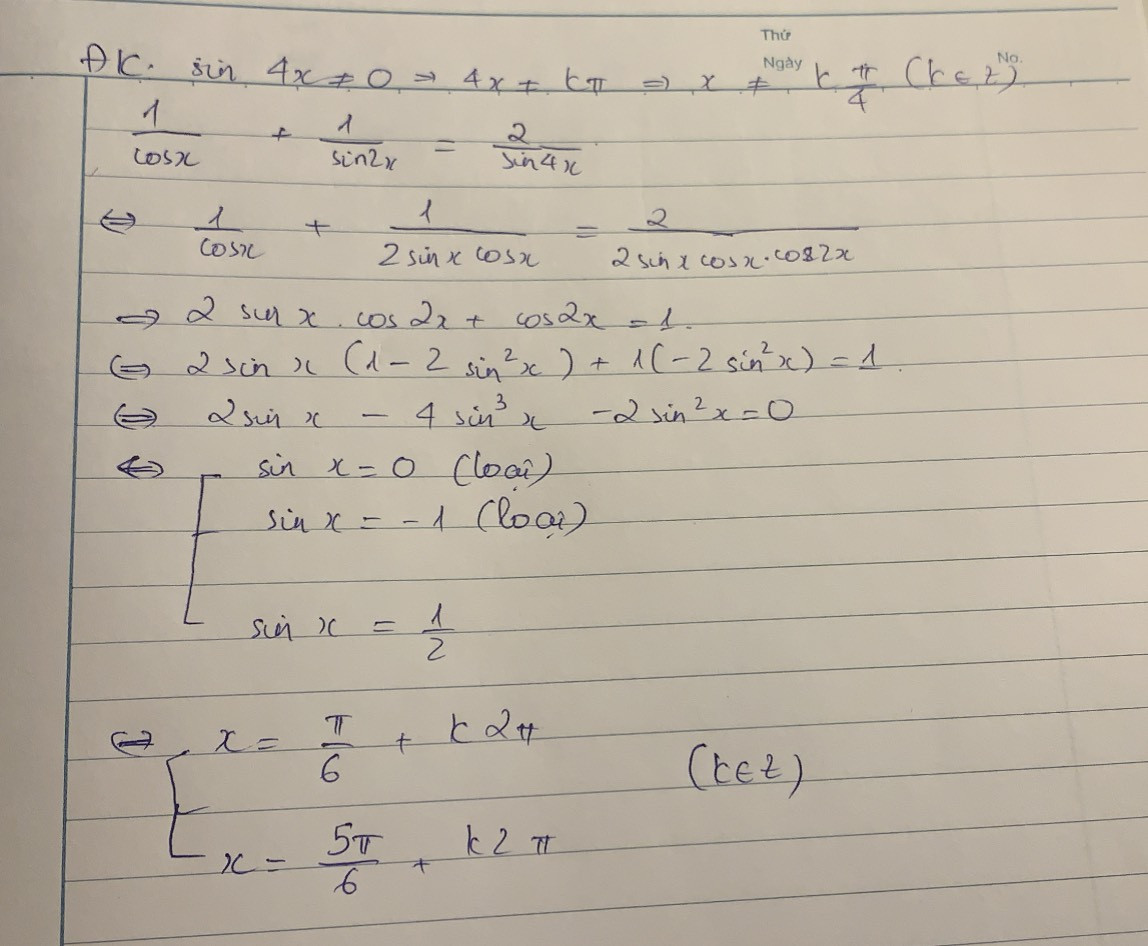 Thứ
Ngày
No.
ĐK. sin 4x ≠ 0 ⇒ 4x ≠ kπ ⇒ x ≠ k π/4 (k ∈ Z)
1/cosx + 1/sin2x = 2/sin4x
⇔ 1/cosx + 1/(2 sinx cosx) = 2/(2 sinx cosx.cos2x)
⇒ 2 sin x . cos 2x + cos2x = 1.
⇔ 2 sin x (1 - 2 sin²x) + 1(-2 sin²x) = 1.
⇔ 2 sin x - 4 sin³x - 2 sin²x = 0
⇔ [ sin x = 0 (loại)
sin x = -1 (loại)
sin x = 1/2
⇔ [ x = π/6 + k2π
(k∈Z)
x = 5π/6 + k2π